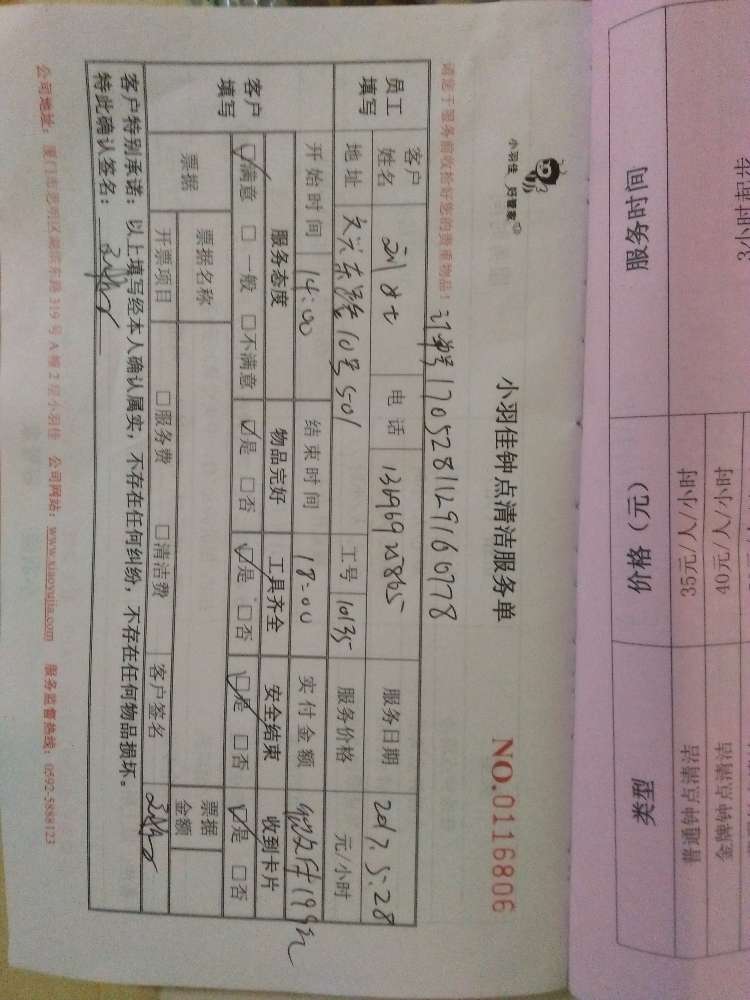 小羽佳 好管家
小羽佳钟点清洁服务单
NO.0116806
请您于服务前收拾好您的贵重物品!
订单号170528112916077 8
员工填写
客户姓名
电话
服务日期 2017.5.28
地址
东路10号501
工号 10135
服务价格 元/小时
开始时间 14:00
结束时间 18:00
实付金额 199元
客户填写
服务态度 物品完好 工具齐全 安全结束 收到卡片
☑满意 □一般 □不满意 ☑是 □否 ☑是 □否 ☑是 □否 ☑是 □否
票据
票据名称
票据金额
开票项目 □服务费 □清洁费 客户签名
客户特别承诺: 以上填写经本人确认属实,不存在任何纠纷,不存在任何物品损坏。
特此确认签名:
公司地址: 厦门市思明区湖滨东路319号A幢2层小羽佳 公司网站: www.xiaoyujia.com 服务监督热线: 0592-5888123
服务时间 价格(元) 类型
3小时起步
35元/人/小时 普通钟点清洁
40元/人/小时 金牌钟点清洁